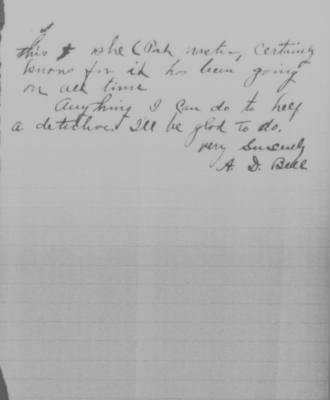 this
she
certainly
for it has been going
on all time
Anything I can do to help
a detective I'll be glad to do.
very Sincerely
A. D. Bell